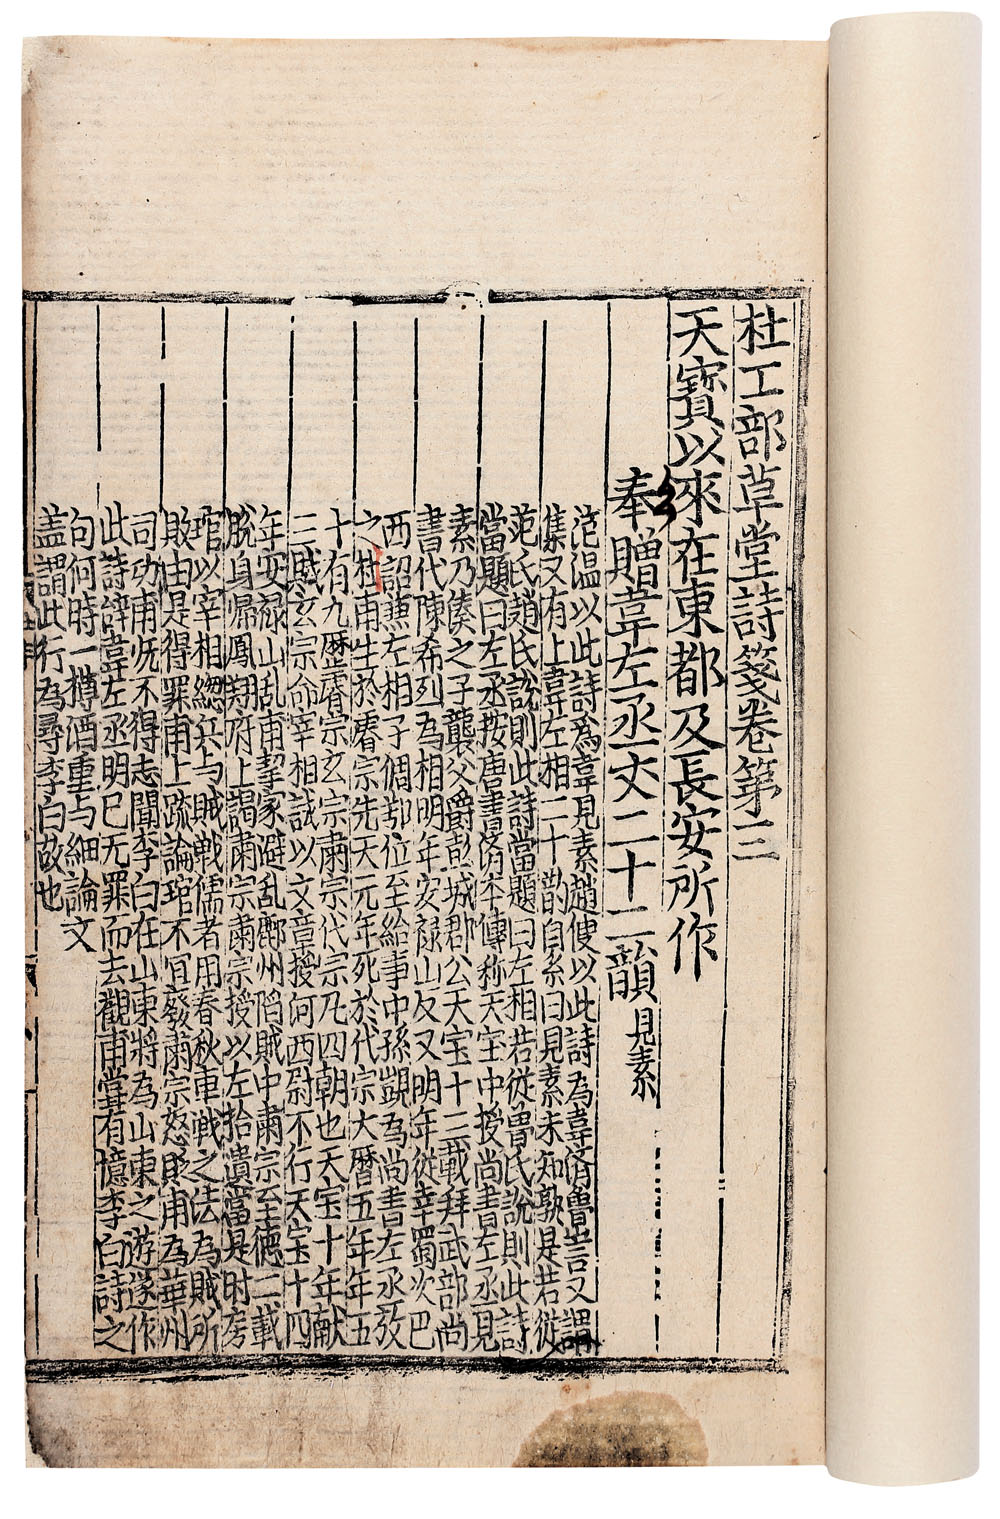 杜工部草堂詩箋卷第三
天寶以來在東都及長安所作
奉贈韋左丞丈二十二韻見素
范溫以此詩爲韋見素趙傁以此詩為韋濟魯訔又謂
集又有上韋左相二十韻自系曰見素未知孰是若從
范氏趙氏說則此詩當題曰左相若從魯氏說則此詩
當題曰左丞按唐書舊本傳称天宝中授尚書左丞見
素乃湊之子襲父爵彭城郡公天宝十三載拜武部尚
書代陳希烈為相明年安禄山反又明年從幸蜀次巴
西詔兼左相子倜諤位至給事中孫顗為尚書左丞攷
之杜甫生於睿宗先天元年死於代宗大曆五年年五
十有九歷睿宗玄宗肅宗代宗凡四朝也天宝十年献
三賦玄宗命宰相試以文章授河西尉不行天宝十四
年安禄山乱甫挈家避乱鄜州陷賊中肅宗至德二載
脫身帰鳳翔府上謁肅宗肅宗授以左拾遺當是时房
琯以宰相緫兵与賊戰儒者用春秋車戰之法為賊所
敗由是得罪甫上疏論琯不宜廢肅宗怒貶甫為華州
司功甫旣不得志聞李白在山東將為山東之游遂作
此詩辞韋左丞明已无罪而去觀甫嘗有憶李白詩之
句何時一樽酒重与細論文
盖謂此行為尋李白故也